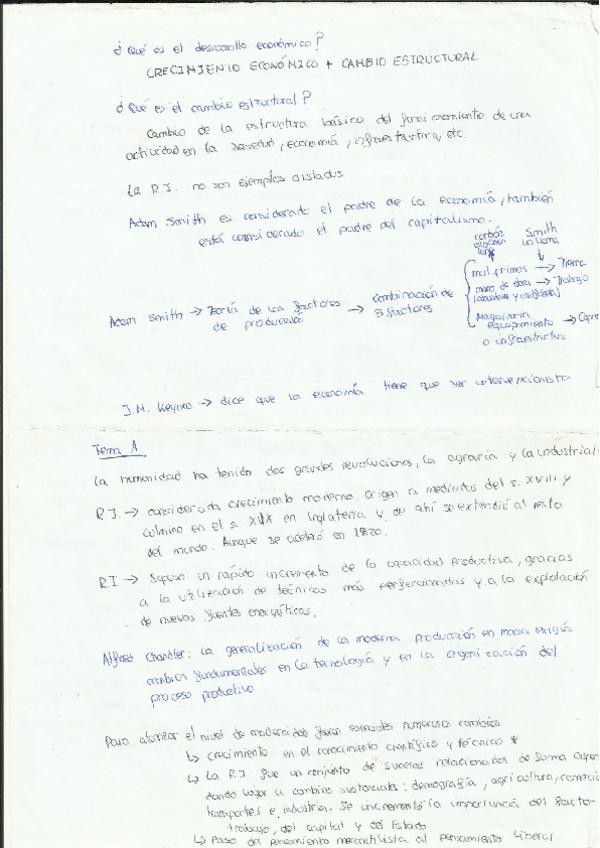 ¿Qué es el desarrollo económico?
CRECIMIENTO ECONÓMICO + CAMBIO ESTRUCTURAL
¿Qué es el cambio estructural?
Cambio de la estructura básica del funcionamiento de una
actividad en la sociedad, economía, infraestructura, etc.
La R.I. no son ejemplos aislados
Adam Smith es considerado el padre de la economía, también
está considerado el padre del capitalismo.
carbón
algodón
lana
Smith
lo llama
Adam Smith → Teoría de los factores
de producción
→ combinación de
3 factores
mat. primas → Tierra
mano de obra → Trabajo
(abundante y cualificada)
Maquinaria
equipamiento → Cap
o infraestructura
J.M. Keynes → dice que la economía tiene que ser intervencionista
Tema 1
La humanidad ha tenido dos grandes revoluciones, la agraria y la industrial
R.I. → considerada crecimiento moderno. Origen a mediados del s. XVIII y
culmino en el s. XIX en Inglaterra y de ahí se extendió al resto
del mundo. Aunque se aceleró en 1820.
R.I → Supuso un rápido incremento de la capacidad productiva, gracias
a la utilización de técnicas más perfeccionadas y a la explotación
de nuevas fuentes energéticas.
Alfred Chandler: la generalización de la moderna producción en masa exigía
cambios fundamentales en la tecnología y en la organización del
proceso productivo
Para alcanzar el nivel de modernidad fueron esenciales numerosos cambios
↳ crecimiento en el conocimiento científico y técnico *
↳ La R.I. fue un conjunto de sucesos relacionados de forma
dando lugar a cambios sustanciales: demografía, agricultura, comercio
transportes e industria. Se incrementó la importancia del factor
trabajo, del capital y del Estado
↳ Paso del pensamiento mercantilista al pensamiento liberal